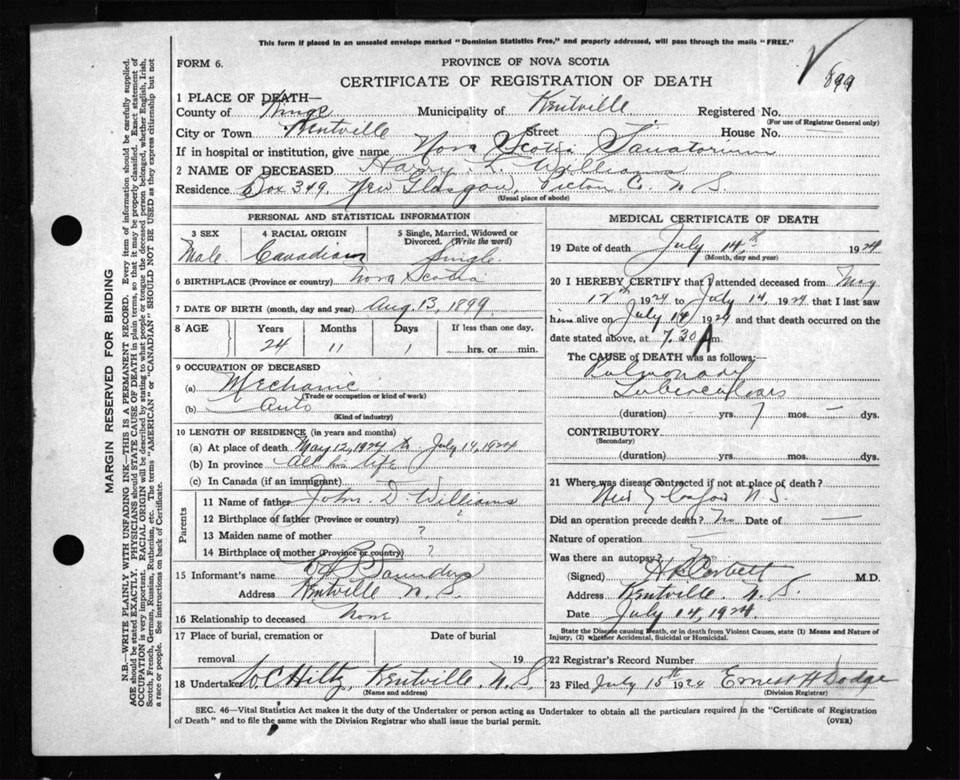 This form if placed in an unsealed envelope marked "Dominion Statistics Free," and properly addressed, will pass through the mails "FREE."
FORM 6.
PROVINCE OF NOVA SCOTIA
CERTIFICATE OF REGISTRATION OF DEATH
899
1 PLACE OF DEATH—
County of Kings Municipality of Kentville Registered No.
(For use of Registrar General only)
City or Town Kentville Street House No. —
If in hospital or institution, give name Nova Scotia Sanatorium
2 NAME OF DECEASED Harry Williams
Residence Box 349, New Glasgow, Pictou C. N. S.
(Usual place of abode)
PERSONAL AND STATISTICAL INFORMATION
3 SEX 4 RACIAL ORIGIN 5 Single, Married, Widowed or Divorced. (Write the word)
Male Canadian Single
6 BIRTHPLACE (Province or country) Nova Scotia
7 DATE OF BIRTH (month, day and year) Aug. 13, 1899
8 AGE Years Months Days If less than one day,
24 11 1 hrs. or min.
9 OCCUPATION OF DECEASED
(a) Mechanic
(Trade or occupation or kind of work)
(b) Auto
(Kind of industry)
10 LENGTH OF RESIDENCE (in years and months)
(a) At place of death May 12, 1924 to July 14, 1924
(b) In province All his life
(c) In Canada (if an immigrant)
Parents
11 Name of father John. D. Williams
12 Birthplace of father (Province or country) "
13 Maiden name of mother ?
14 Birthplace of mother (Province or country) ?
15 Informant's name Saunders
Address Kentville N. S.
16 Relationship to deceased None
17 Place of burial, cremation or removal Date of burial
19
18 Undertaker W. C. Hiltz, Kentville N. S.
(Name and address)
MEDICAL CERTIFICATE OF DEATH
19 Date of death July 14th 1924
(Month, day and year)
20 I HEREBY CERTIFY that I attended deceased from May
12th 1924 to July 14, 1924 that I last saw
him alive on July 14 1924 and that death occurred on
date stated above, at 7.30 A m.
The CAUSE of DEATH was as follows:
Pulmonary
Tuberculosis
(duration) — yrs. 7 mos. — dys.
CONTRIBUTORY
(Secondary)
(duration) yrs. mos. dys.
21 Where was disease contracted if not at place of death?
New Glasgow N. S.
Did an operation precede death? No Date of —
Nature of operation —
Was there an autopsy? No
(Signed) Corbett M.D.
Address Kentville. N. S.
Date July 14, 1924
State the Disease causing Death, or in death from Violent Causes, state (1) Means and Nature of
Injury, (2) whether Accidental, Suicidal or Homicidal.
22 Registrar's Record Number
23 Filed July 15th 1924 Ernest H Dodge
(Division Registrar)
SEC. 46—Vital Statistics Act makes it the duty of the Undertaker or person acting as Undertaker to obtain all the particulars required in the "Certificate of Registration
of Death" and to file the same with the Division Registrar who shall issue the burial permit.
(OVER)
MARGIN RESERVED FOR BINDING
N.B.—WRITE PLAINLY WITH UNFADING INK—THIS IS A PERMANENT RECORD. Every item of information should be carefully supplied.
AGE should be stated EXACTLY. PHYSICIANS should STATE CAUSE OF DEATH in plain terms, so that it may be properly classified. Exact statement of
OCCUPATION is very important. RACIAL ORIGIN will be described by stating to what people or tongue the deceased person belonged, whether English, Irish,
Scotch, French, German, Russian, Ruthenian, etc. The terms "AMERICAN" or "CANADIAN" SHOULD NOT BE USED as they express citizenship but not
a race or people. See instructions on back of Certificate.